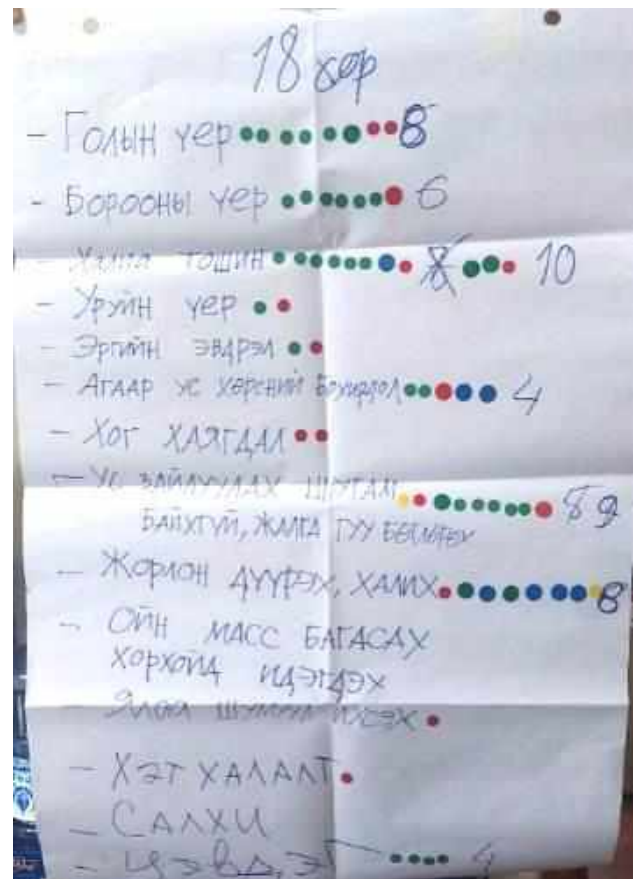 18 хөр
- Голын үер 8
- Борооны үер 6
- Халиа тошин 8 10
- Уруйн үер
- Эргийн эвдрэл
- Агаар ус хөрсний бохирдол 4
- Хог хаягдал
- Ус зайлуулах шугам 8 9
байхгүй, жалга гуу бөглөрөх
- Жорлон дүүрэх, халих 8
- Ойн масс багасах
хорхойд идэгдэх
- Ялаа шумуул ихсэх
- Хэт халалт
- Салхи
- Цэвд, эг 4